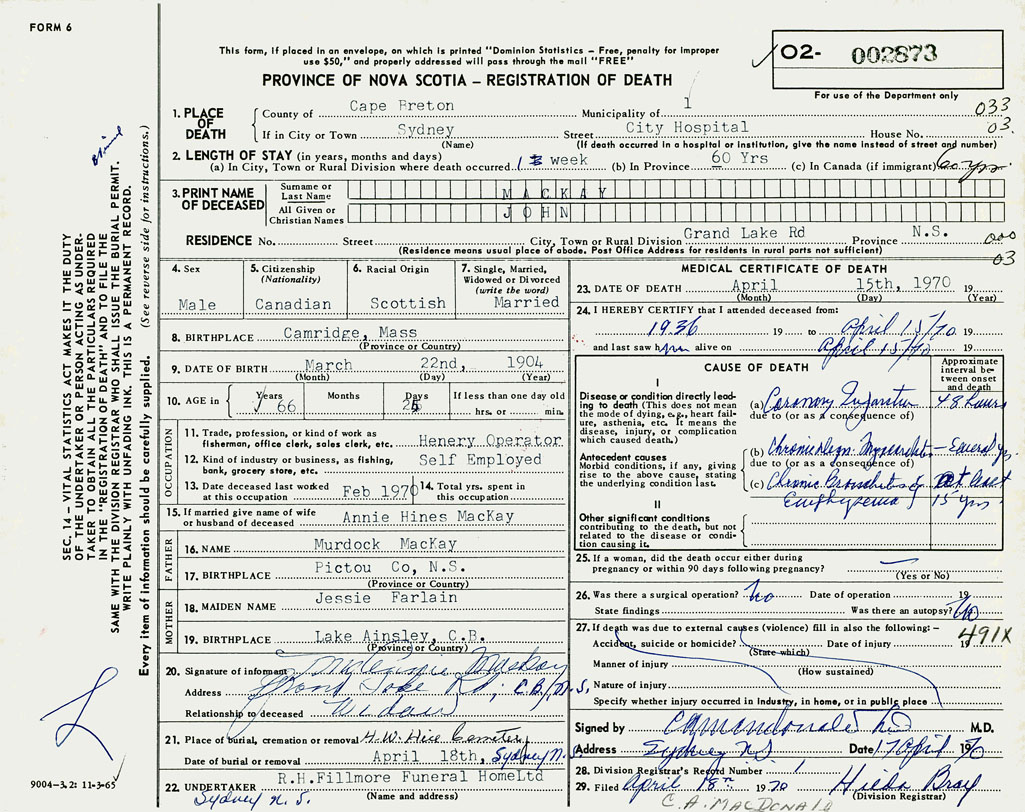 FORM 6
This form, if placed in an envelope, on which is printed "Dominion Statistics — Free, penalty for improper
use $50," and properly addressed will pass through the mail "FREE"
PROVINCE OF NOVA SCOTIA — REGISTRATION OF DEATH
O2- 002873
For use of the Department only
1. PLACE OF DEATH
County of Cape Breton Municipality of 1 033
If in City or Town Sydney Street City Hospital House No. 03.
(Name) (If death occurred in a hospital or institution, give the name instead of street and number)
2. LENGTH OF STAY (in years, months and days)
(a) In City, Town or Rural Division where death occurred 1 week (b) In Province 60 Yrs (c) In Canada (if immigrant) 60 yrs
3. PRINT NAME OF DECEASED
Surname or Last Name MACKAY
All Given or Christian Names JOHN
RESIDENCE No. Street City, Town or Rural Division Grand Lake Rd Province N.S. 000
(Residence means usual place of abode. Post Office Address for residents in rural parts not sufficient) 03
4. Sex Male
5. Citizenship (Nationality) Canadian
6. Racial Origin Scottish
7. Single, Married, Widowed or Divorced (write the word) Married
8. BIRTHPLACE Camridge, Mass
(Province or Country)
9. DATE OF BIRTH March 22nd, 1904
(Month) (Day) (Year)
10. AGE in Years 66 Months Days If less than one day old hrs. or min.
OCCUPATION
11. Trade, profession, or kind of work as fisherman, office clerk, sales clerk, etc. Henery Operator
12. Kind of industry or business, as fishing, bank, grocery store, etc. Self Employed
13. Date deceased last worked at this occupation Feb 1970
14. Total yrs. spent in this occupation
15. If married give name of wife or husband of deceased Annie Hines MacKay
FATHER
16. NAME Murdock MacKay
17. BIRTHPLACE Pictou Co, N.S.
(Province or Country)
MOTHER
18. MAIDEN NAME Jessie Farlain
19. BIRTHPLACE Lake Ainsley, C.B.
(Province or Country)
20. Signature of informant Annie MacKay
Address Grand Lake Rd, C.B., N.S,
Relationship to deceased Widow
21. Place of burial, cremation or removal Cemetery
Date of burial or removal April 18th, Sydney N.S.
22. UNDERTAKER R.H.Fillmore Funeral HomeLtd
Sydney N.S. (Name and address)
MEDICAL CERTIFICATE OF DEATH
23. DATE OF DEATH April 15th, 1970 19
(Month) (Day) (Year)
24. I HEREBY CERTIFY that I attended deceased from:
1936 19 to April 15/70 19
and last saw him alive on April 15/70 19
CAUSE OF DEATH
Approximate interval between onset and death
I
Disease or condition directly leading to death (This does not mean the mode of dying, e.g., heart failure, asthenia, etc. It means the disease, injury, or complication which caused death.)
(a) Coronary 48 hours
due to (or as a consequence of)
Antecedent causes
Morbid conditions, if any, giving rise to the above cause, stating the underlying condition last.
(b) Chronic
due to (or as a consequence of)
(c) Chronic Bronchitis & at least
Emphysema 15 yrs
II
Other significant conditions contributing to the death, but not related to the disease or condition causing it.
25. If a woman, did the death occur either during
pregnancy or within 90 days following pregnancy?
(Yes or No)
26. Was there a surgical operation? No Date of operation 19
State findings Was there an autopsy? No
27. If death was due to external causes (violence) fill in also the following: — 491X
Accident, suicide or homicide? Date of injury 19
(State which)
Manner of injury
(How sustained)
Nature of injury
Specify whether injury occurred in Industry, in home, or in public place
Signed by M.D.
Address Sydney NS Date 17 April 1970
28. Division Registrar's Record Number
29. Filed April 18th 1970 Hilda Bray
(Division Registrar)
C. A. MACDONALD
SEC. 14 — VITAL STATISTICS ACT MAKES IT THE DUTY
OF THE UNDERTAKER OR PERSON ACTING AS UNDER-
TAKER TO OBTAIN ALL THE PARTICULARS REQUIRED
IN THE "REGISTRATION OF DEATH" AND TO FILE THE
SAME WITH THE DIVISION REGISTRAR WHO SHALL ISSUE THE BURIAL PERMIT.
WRITE PLAINLY WITH UNFADING INK. THIS IS A PERMANENT RECORD.
Every item of information should be carefully supplied. (See reverse side for instructions.)
9004-3.2: 11-3-65